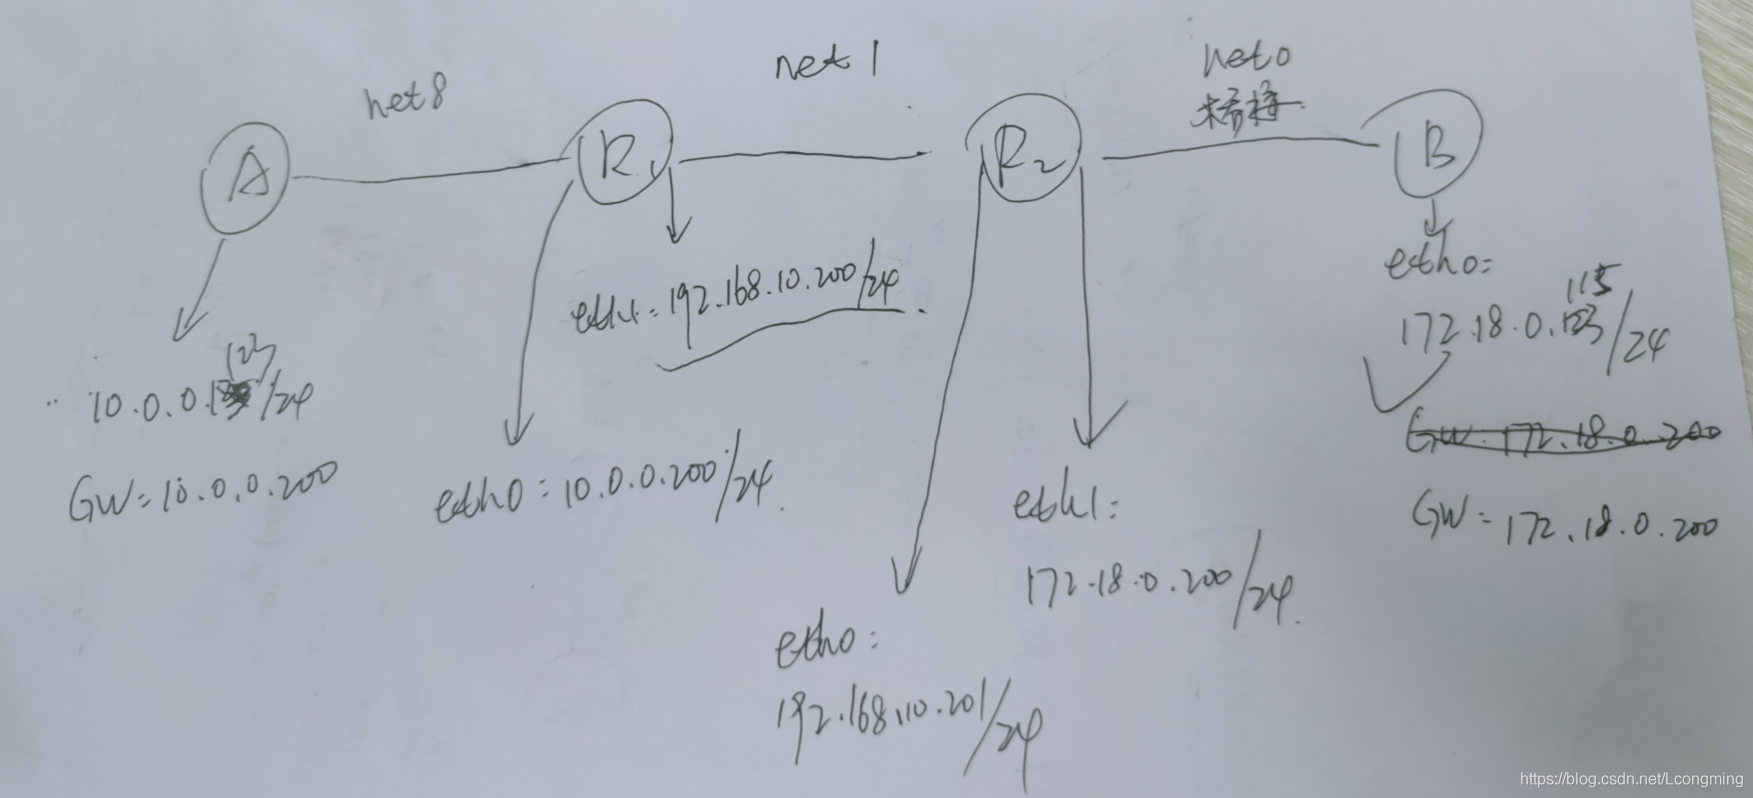 net8
net1
net0
桥接
A
R1
R2
B
eth0:
115
172.18.0.123/24
eth1:192.168.10.200/24
123
10.0.0.1 /24
GW:10.0.0.200
eth0:10.0.0.200/24
GW:172.18.0.200
GW:172.18.0.200
eth1:
172.18.0.200/24
eth0:
192.168.10.201/24
https://blog.csdn.net/Lcongming